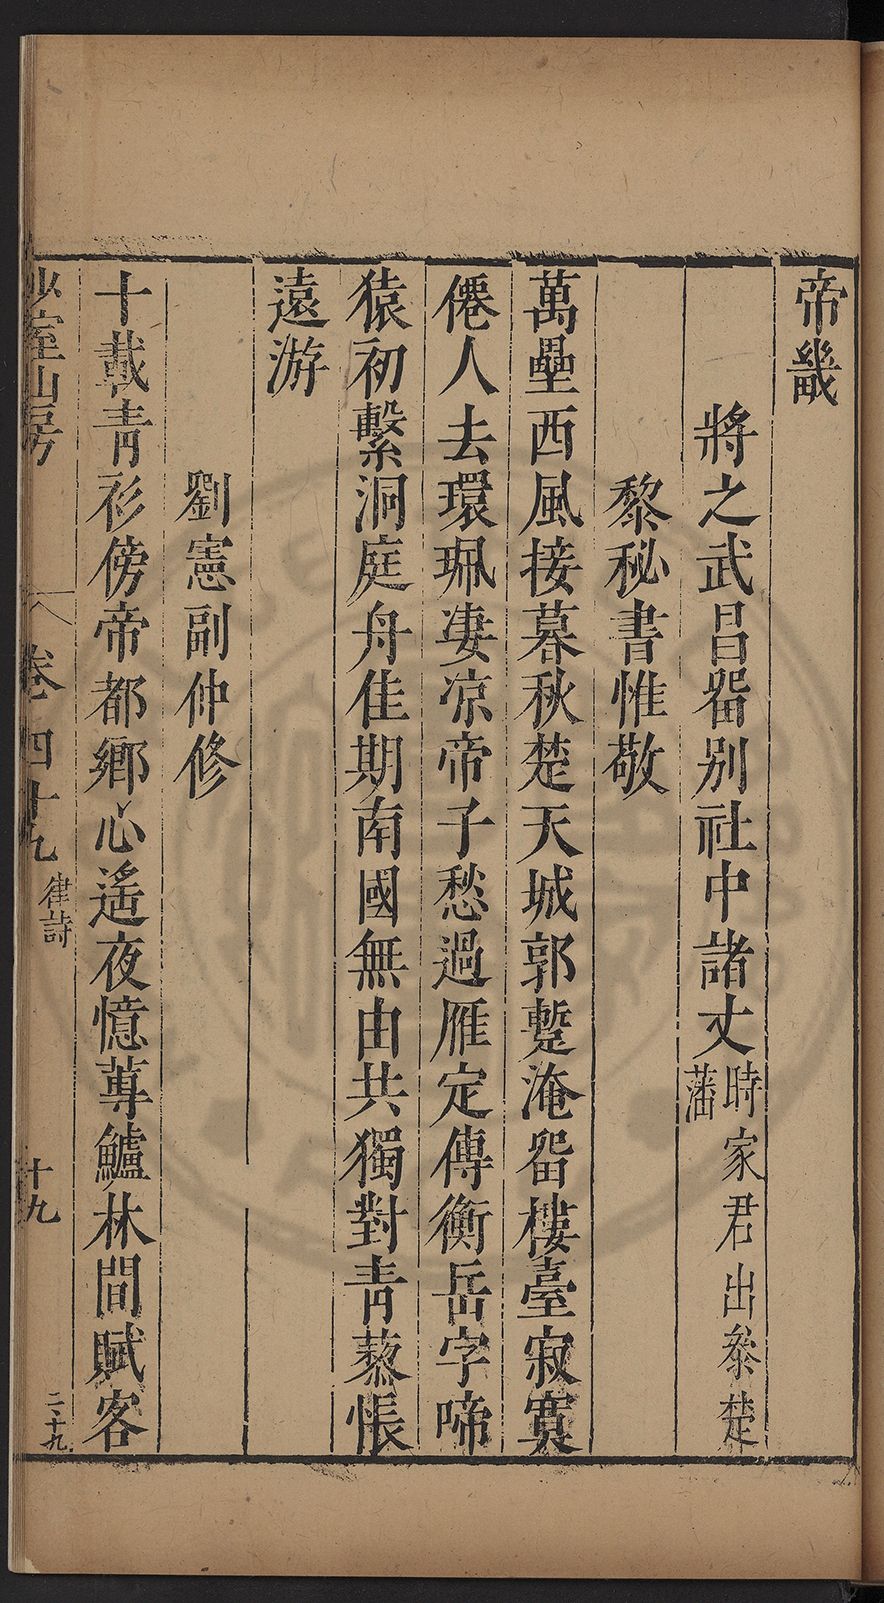 帝畿
將之武昌畱別社中諸丈時家君出叅楚
藩
黎秘書惟敬
萬壘西風接暮秋楚天城郭蹔淹畱樓臺寂寞
僊人去環珮凄凉帝子愁過雁定傳衡岳字啼
猿初繫洞庭舟佳期南國無由共獨對青藜悵
遠游
劉憲副仲修
十載青衫傍帝都鄉心遙夜憶蓴鱸林間賦客
少室山房
卷四十九
律詩
十九
二十九